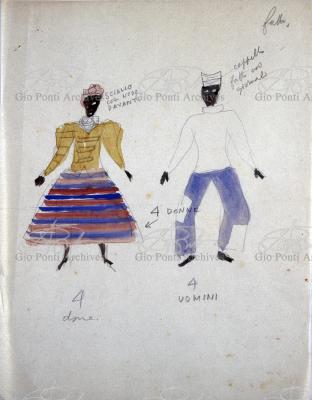 fatto.
SCIALLO
CON NODO
DAVANTI
cappello
fatto con
giornale
4 DONNE
4
donne.
4
UOMINI
Gio Ponti Archives
Gio Ponti Archives
Gio Ponti Archives
Gio Ponti Archives
Gio Ponti Archives
Gio Ponti Archives